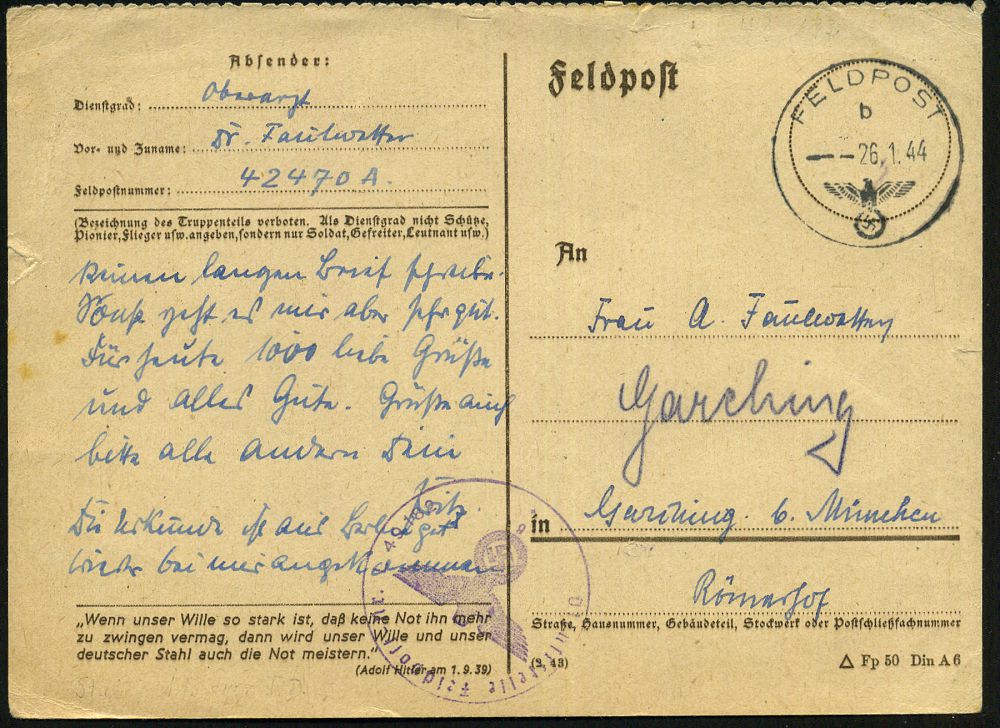 Absender:
Dienstgrad: Oberarzt
Vor- und Zuname: Dr. Faulwetter
Feldpostnummer: 42470 A.
(Bezeichnung des Truppenteils verboten. Als Dienstgrad nicht Schütze,
Pionier, Flieger usw. angeben, sondern nur Soldat, Gefreiter, Leutnant usw.)
keinen langen Brief schreibe.
Sonst geht es mir aber sehr gut.
Für heute 1000 liebe Grüße
und alles Gute. Grüße auch
bitte alle andern Dein
Fritz.
Die Urkunde ist aus
wieder bei mir angekommen
„Wenn unser Wille so stark ist, daß keine Not ihn mehr
zu zwingen vermag, dann wird unser Wille und unser
deutscher Stahl auch die Not meistern."
(Adolf Hitler am 1.9.39)
Feldpost
FELDPOST
b
26.1.44
An
Frau A. Faulwetter
Garching
in Garching b. München
Römerhof
Straße, Hausnummer, Gebäudeteil, Stockwerk oder Postschließfachnummer
(3. 43)
Δ Fp 50 Din A 6
Dienststelle Feldpostnr.